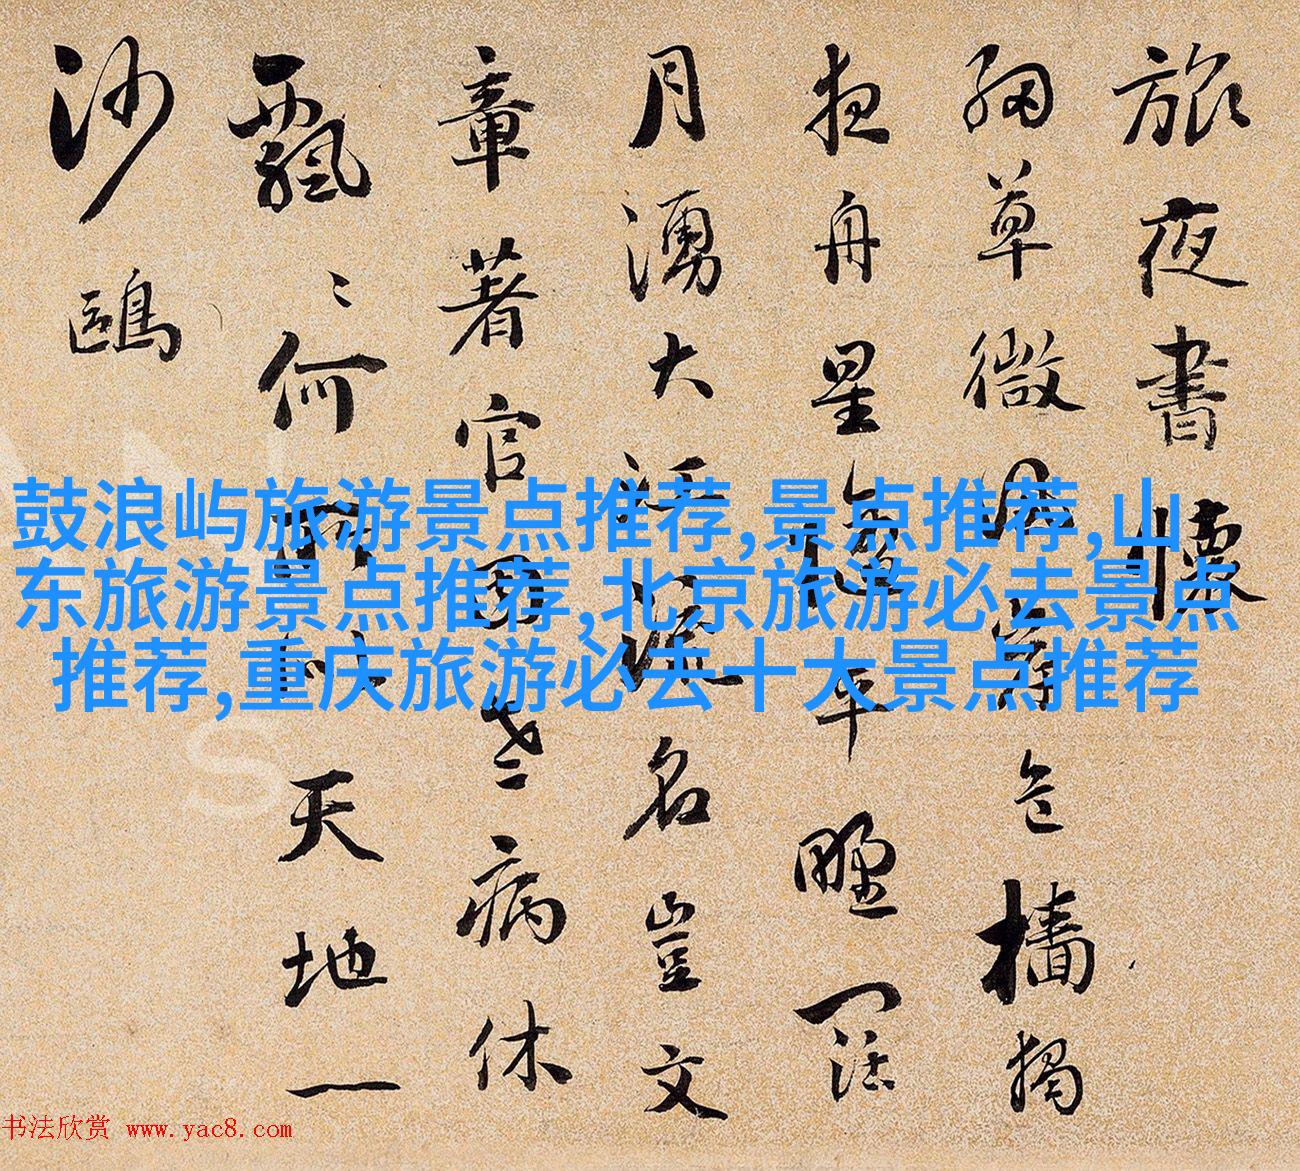 旅夜書懷
細草微風岸危檣獨
夜舟星隨平野闊
月湧大江流名豈文
章著官因老病休
飄〻何所似天地一
沙鷗
鼓浪屿旅游景点推荐,景点推荐,山
东旅游景点推荐,北京旅游必去景点
推荐,重庆旅游必去十大景点推荐
书法欣赏 www.yac8.com